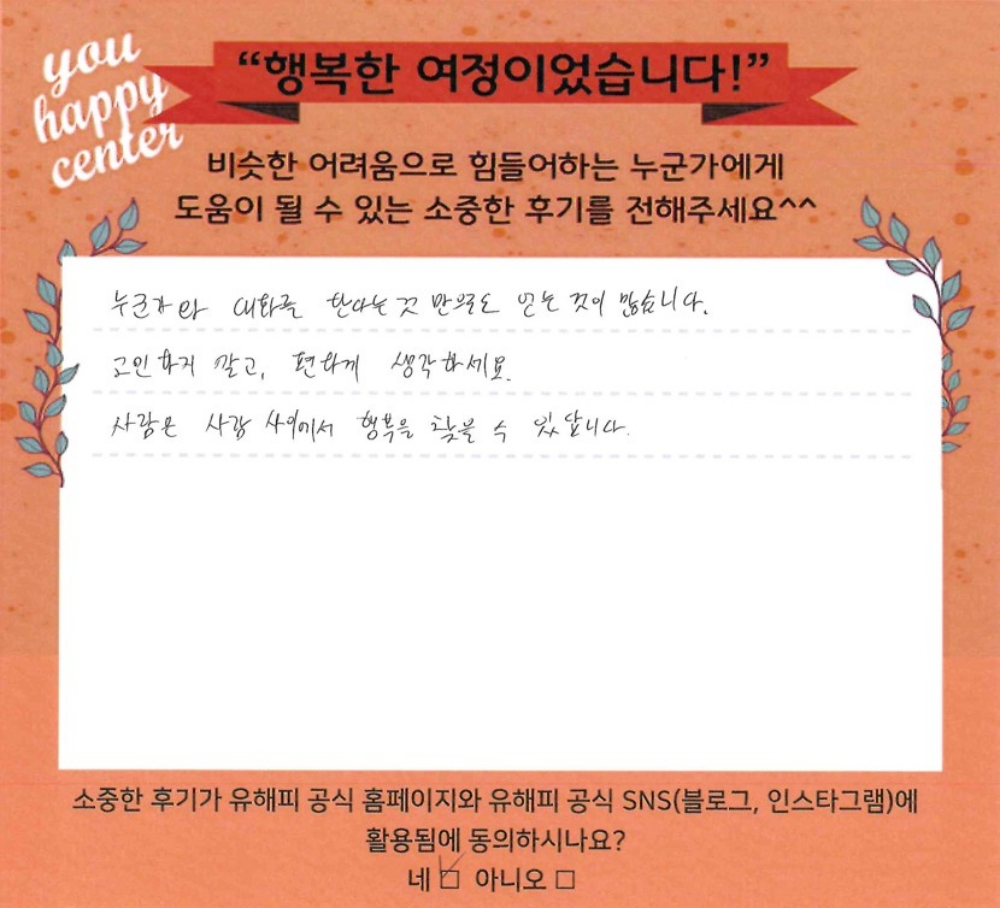 you
happy
center
“행복한 여정이었습니다!”
비슷한 어려움으로 힘들어하는 누군가에게
도움이 될 수 있는 소중한 후기를 전해주세요^^
누군가와 대화를 한다는 것 만으로도 얻는 것이 많습니다.
고민하지 말고, 편하게 생각하세요.
사람은 사람 사이에서 행복을 찾을 수 있답니다.
소중한 후기가 유해피 공식 홈페이지와 유해피 공식 SNS(블로그, 인스타그램)에
활용됨에 동의하시나요?
네 ☑ 아니오 □